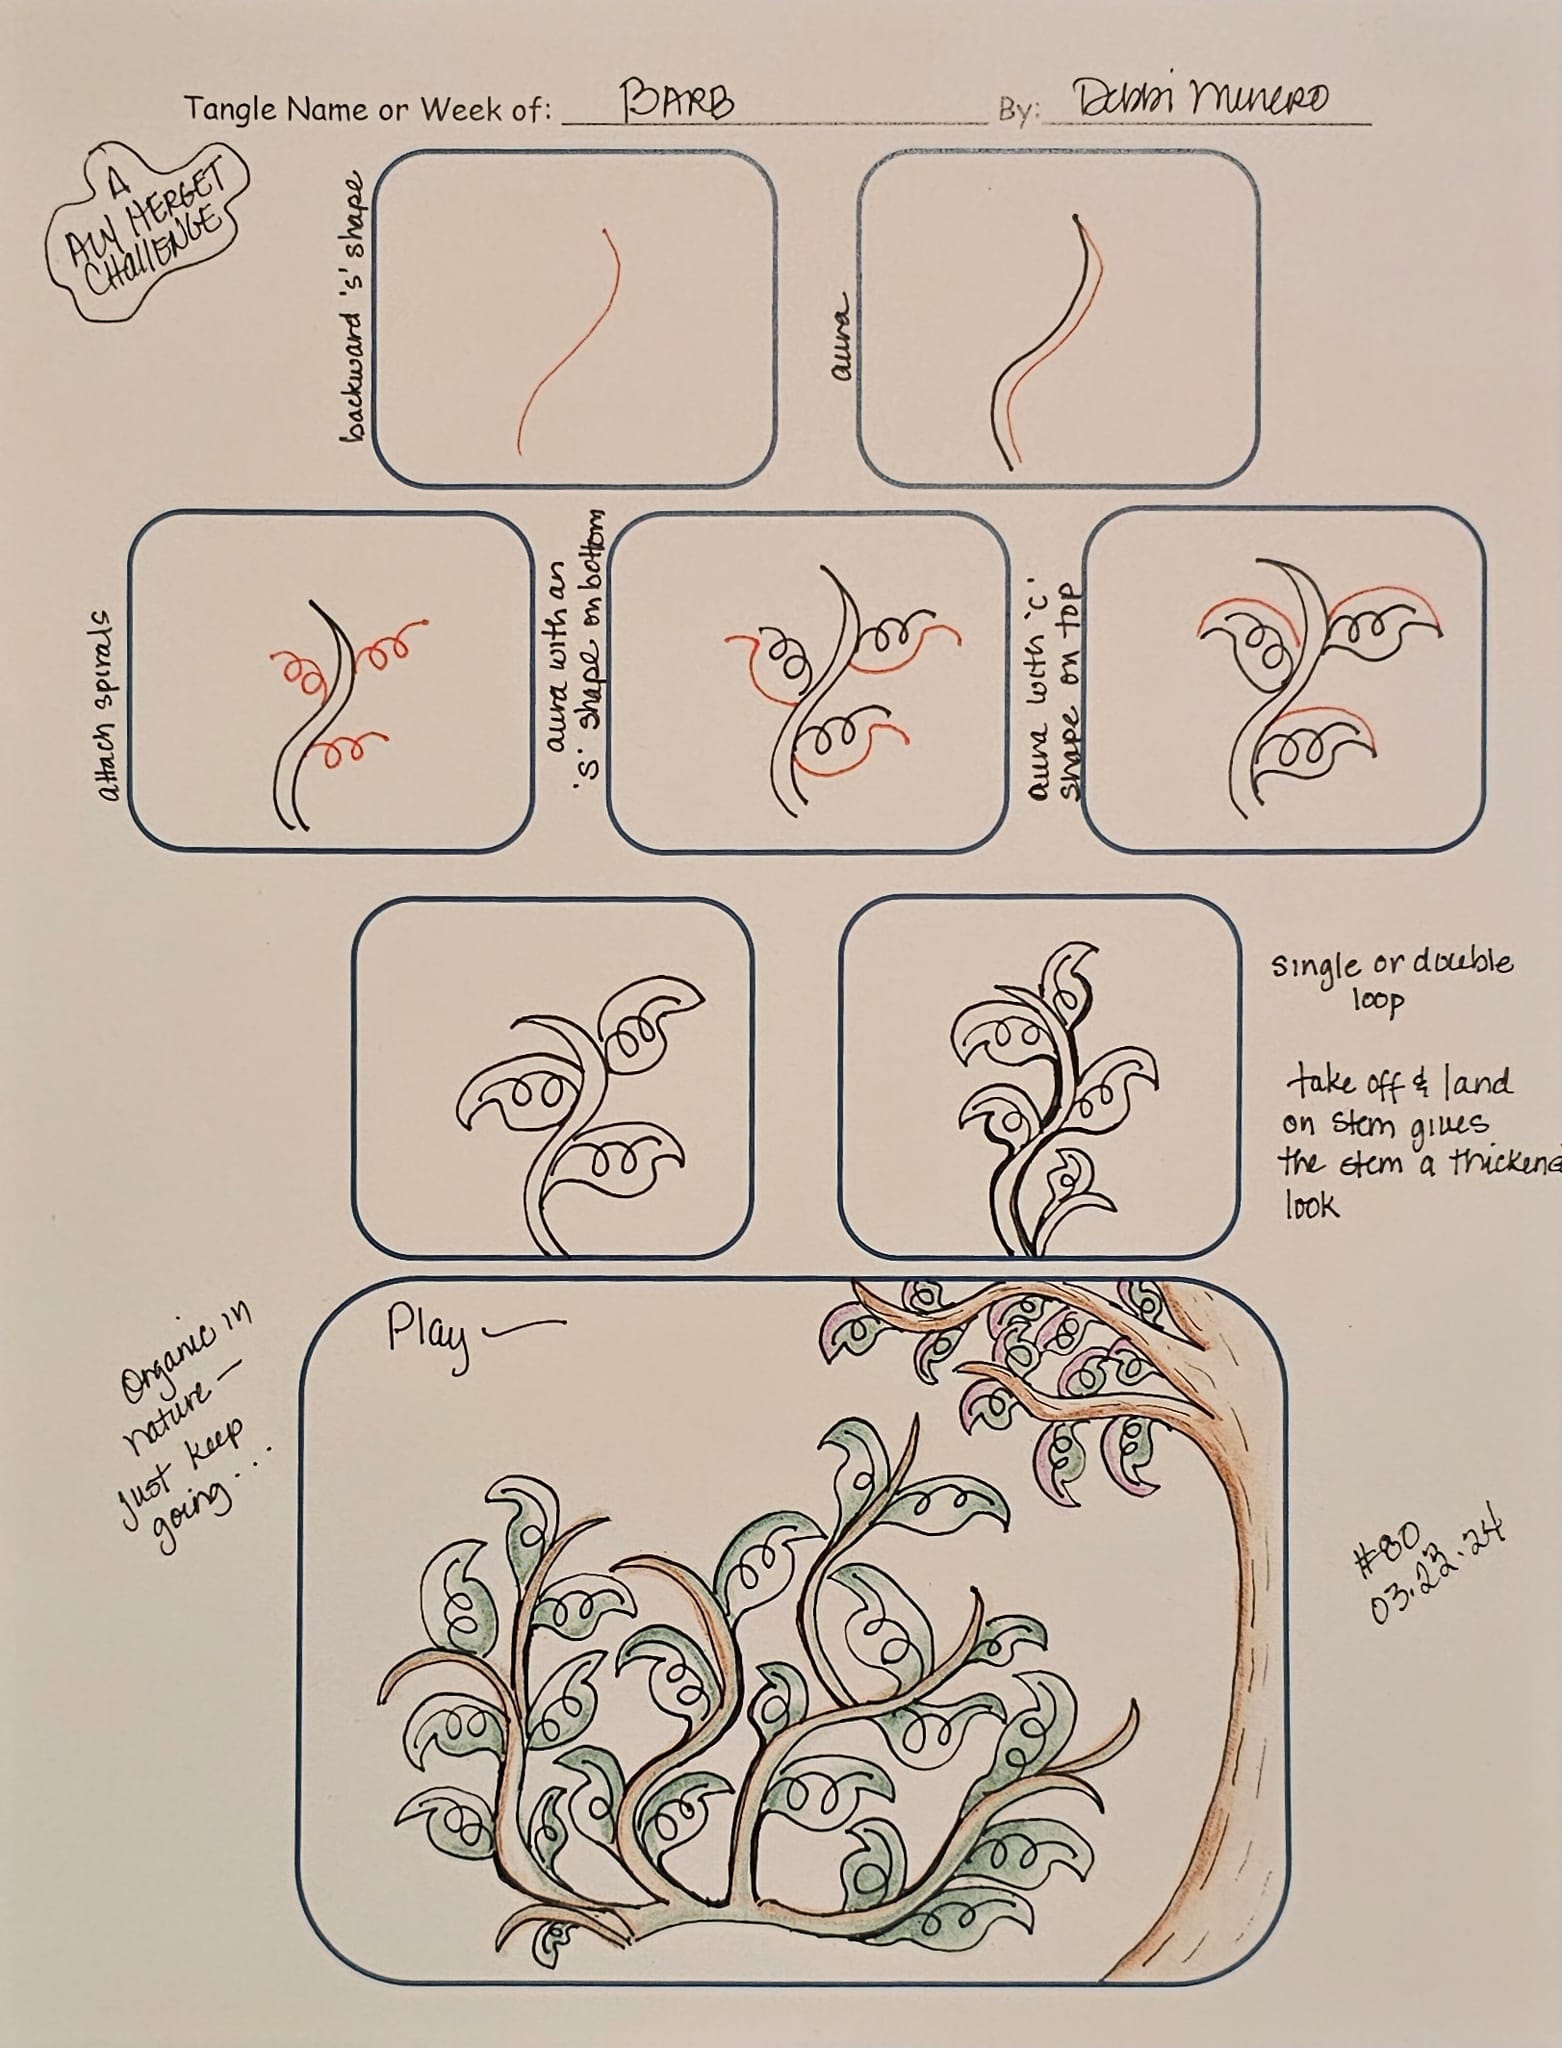 Tangle Name or Week of: BARB By: Debbi Munero
A
ALY HERGET
CHALLENGE
backward 's' shape
aura
attach spirals
aura with an
's' shape on bottom
aura with 'c'
shape on top
single or double
loop
take off & land
on stem gives
the stem a thickend
look
Play
Organic in
nature —
just keep
going...
#80
03.22.24